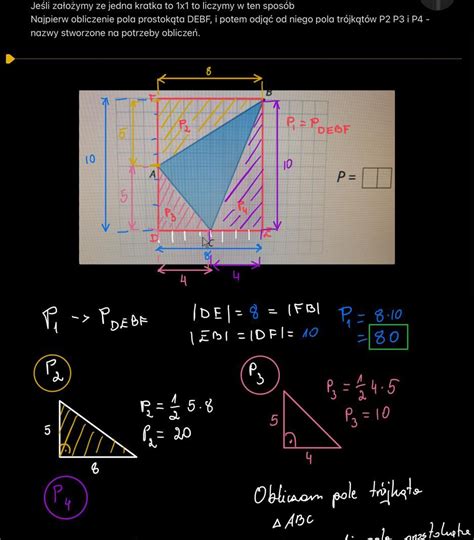 Jeśli założymy ze jedna kratka to 1x1 to liczymy w ten sposób
Najpierw obliczenie pola prostokąta DEBF, i potem odjąć od niego pola trójkątów P2 P3 i P4 -
nazwy stworzone na potrzeby obliczeń.
8
F
B
P2
P1 = P DEBF
5
10
10
A
P =
5
P3
P4
D
C
E
8
4
4
P1 -> P DEBF
|DE| = 8 = |FB|
|EB| = |DF| = 10
P1 = 8·10
= 80
P2
5
8
P2 = 1/2 5·8
P2 = 20
P3
5
4
P3 = 1/2 4·5
P3 = 10
P4
Obliczam pole trójkąta
△ABC
pola prostokąta